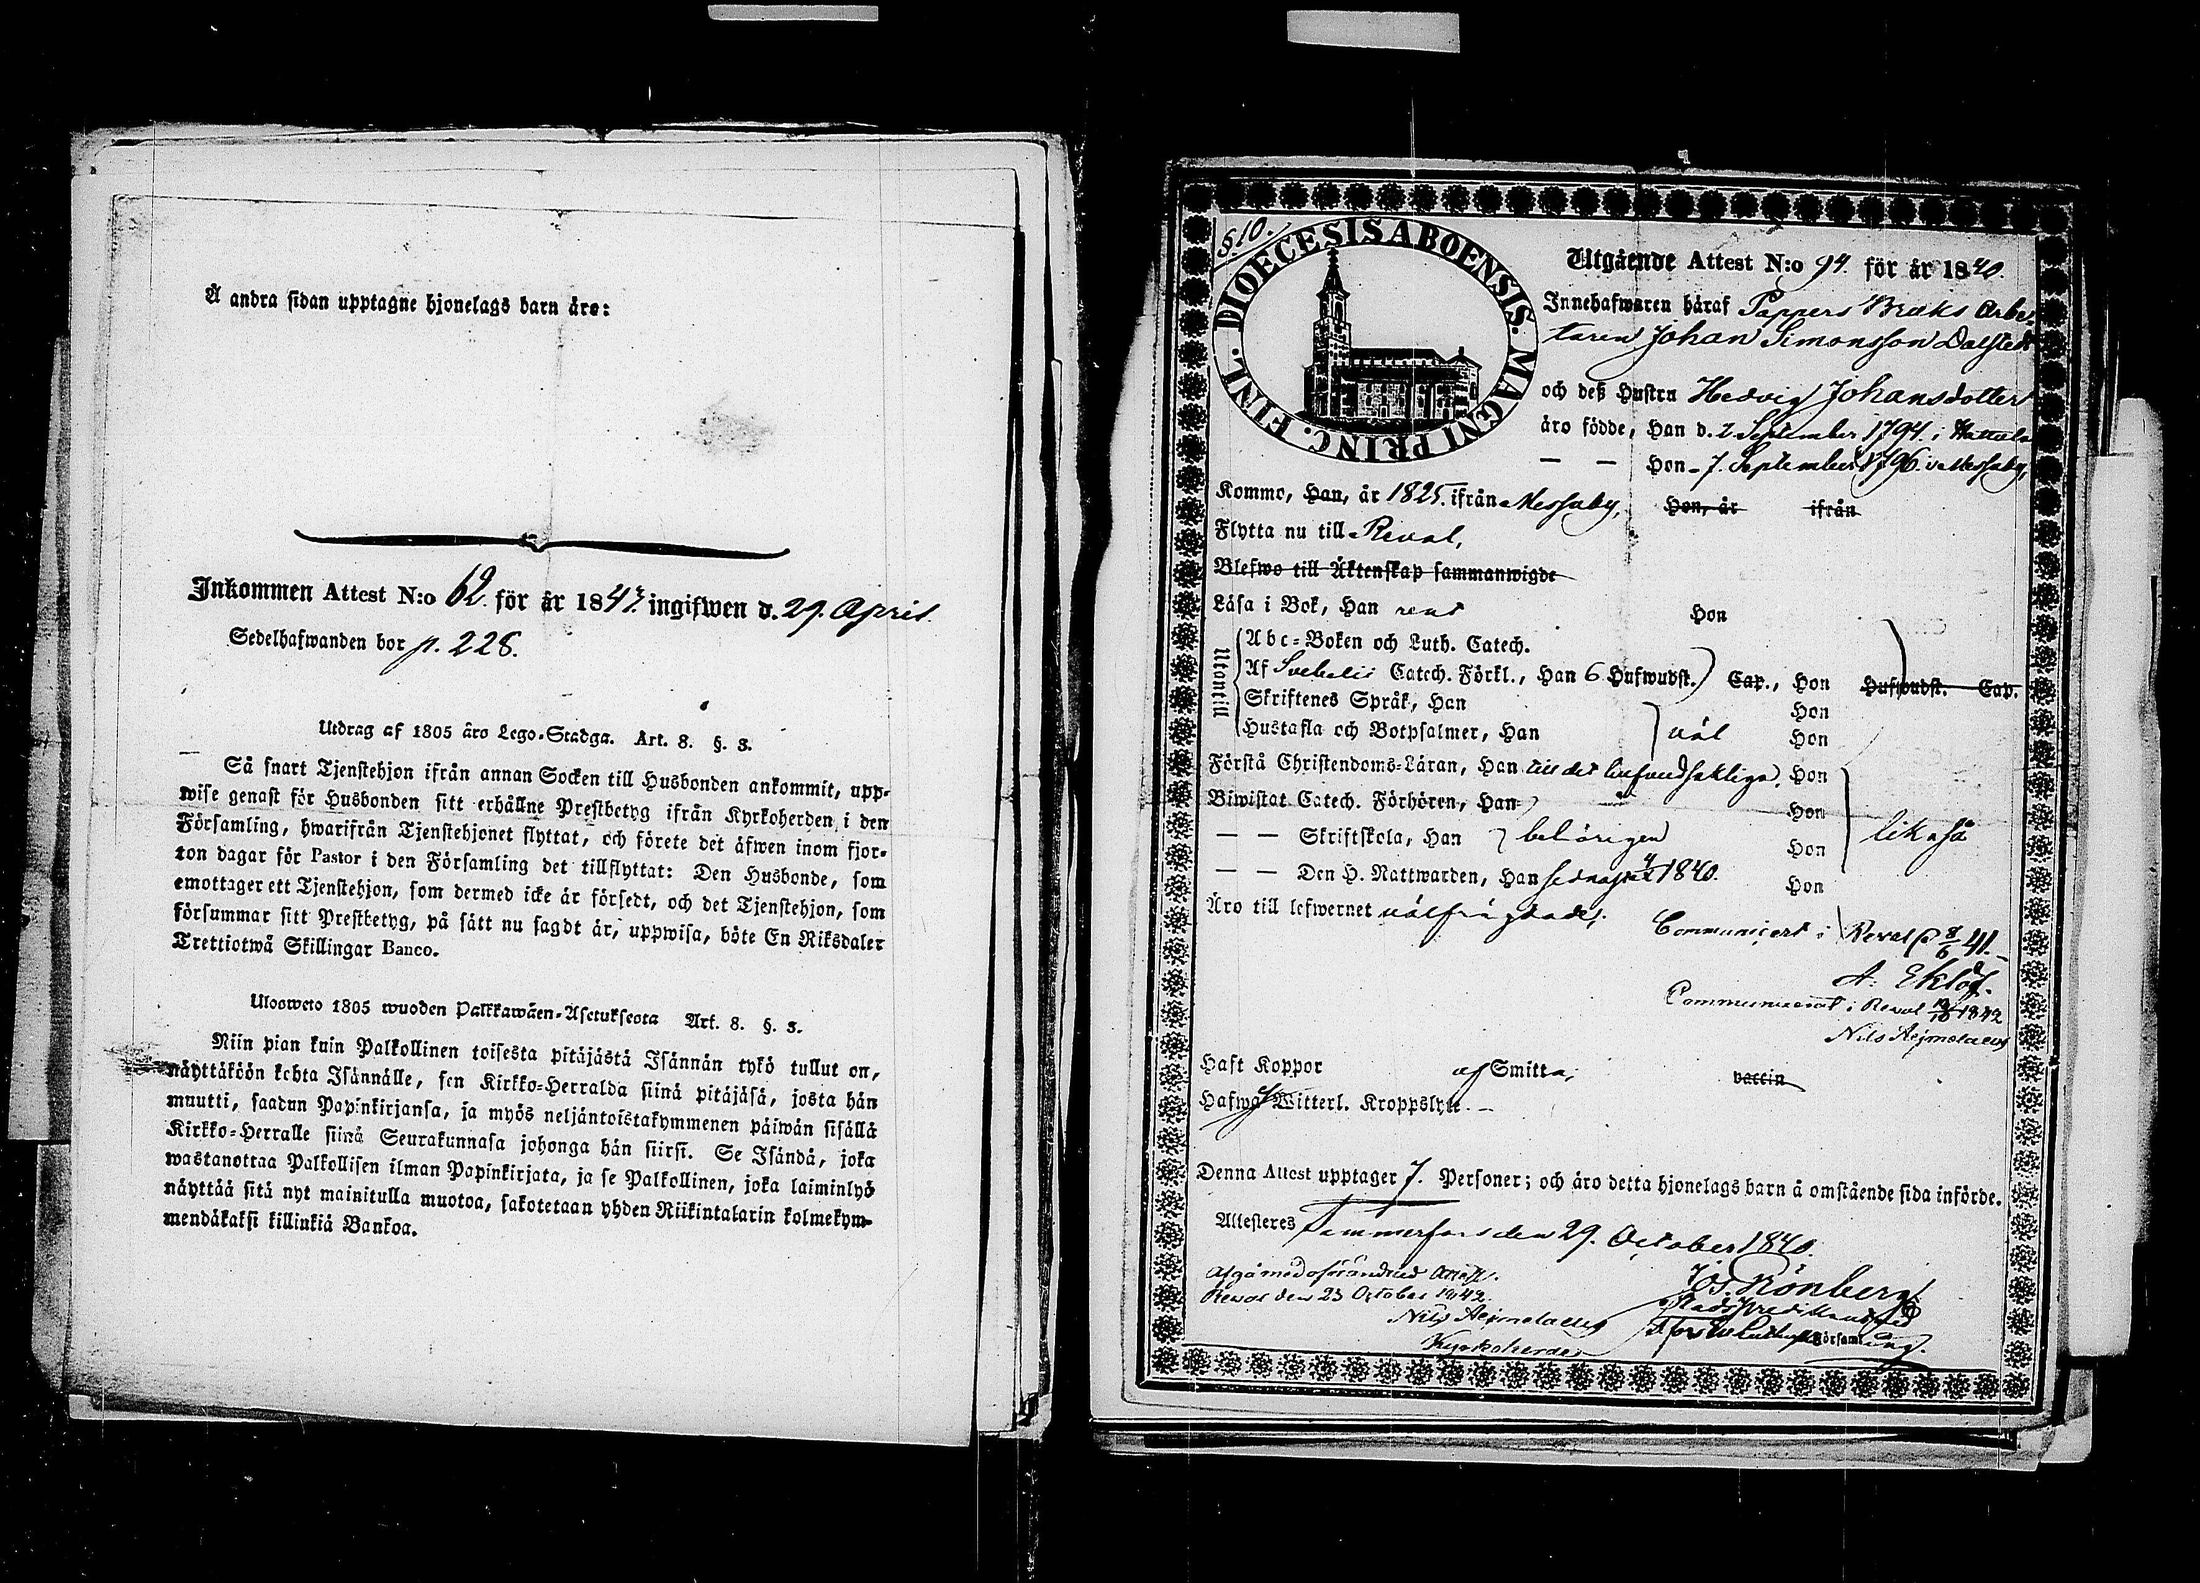 Å andra sidan upptagne hjonelags barn äro:
Inkommen Attest N:o 62. för år 1847. ingifwen d. 29. April.
Sedelhafwanden bor p. 228.
Utdrag af 1805 åro Lego-Stadga. Art. 8. §. 3.
Så snart Tjenstehjon ifrån annan Socken till Husbonden ankommit, upp-
wise genast för Husbonden sitt erhållne Prestbetyg ifrån Kyrkoherden i den
Församling, hwarifrån Tjenstehjonet flyttat, och förete det äfwen inom fjor-
ton dagar för Pastor i den Församling det tillflyttat: Den Husbonde, som
emottager ett Tjenstehjon, som dermed icke är försedt, och det Tjenstehjon, som
försummar sitt Prestbetyg, på sätt nu sagdt är, uppwisa, böte En Riksdaler
Trettiotwå Skillingar Banco.
Ulosweto 1805 wuoden Palkkawäen-Asetuksesta Art. 8. §. 3.
Niin pian kuin Palkollinen toisesta pitäjästä Isännän tykö tullut on,
näyttäköön kohta Isännälle, sen Kirkko-Herralda siinä pitäjäsä, josta hän
muutti, saadun Papinkirjansa, ja myös neljäntoistakymmenen päiwän sisällä
Kirkko-Herralle siinä Seurakunnasa johonga hän siirsi. Se Isändä, joka
wastanottaa Palkollisen ilman Papinkirjata, ja se Palkollinen, joka laiminlyö
näyttää sitä nyt mainitulla muotoa, sakotetaan yhden Riikintalarin kolmekym-
mendäkaksi killinkiä Bankoa.
§10.
DIOECESIS ABOENSIS. MAGNI PRINC. FINL.
Utgående Attest N:o 94. för år 1840.
Innehafwaren häraf Pappers Bruks Arbe-
taren Johan Simonsson Dalstedt
och deß Hustru Hedvig Johansdotter
äro födde, Han d. 2. September 1794. i Hattula
— — Hon - 7. September 1796. i Messuby,
Kommo, Han, år 1825. ifrån Messuby, Hon, år ifrån
Flytta nu till Reval,
Blefwo till Äktenskap sammanwigde
Läsa i Bok, Han rent Hon
Utontill
Abc-Boken och Luth. Catech.
Af Svebelii Catech. Förkl., Han 6 Hufwudst. Cap., Hon Hufwudst. Cap.
Skriftenes Språk, Han Hon
Hustafla och Botpsalmer, Han väl Hon
Förstå Christendoms-Läran, Han till det hufvudsakliga. Hon
Biwistat Catech. Förhören, Han Hon
— — Skriftskola, Han behörigen Hon likaså
— — Den H. Nattwarden, Han sednast 1840. Hon
Äro till lefwernet välfrägdade,
Communicert i Reval d 8/6 41.
A. Eklöf.
Communicerat i Reval 1842
Nils Aejmelaeus
Haft Koppor af Smitta, vaccin
Hafwa Witterl. Kroppslyte. —
Denna Attest upptager 7. Personer; och äro detta hjonelags barn å omstående sida införde.
Attesteres Tammerfors den 29. October 1840.
Afgå med oförändrad Attest.
Reval den 23 October 1842.
Nils Aejmelaeus
Kyrkoherde
Rönberg
Församling.